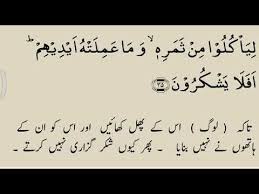 لِيَاۡكُلُوۡا مِنۡ ثَمَرِهٖ ۙ وَ مَا عَمِلَتۡهُ اَيۡدِيۡهِمۡ ؕ
اَفَلَا يَشۡكُرُوۡنَ ﴿۳۵﴾
تاکہ ( لوگ ) اس کے پھل کھائیں اور اس کو ان کے
ہاتھوں نے نہیں بنایا ۔ پھر کیوں شکر گزاری نہیں کرتے ۔